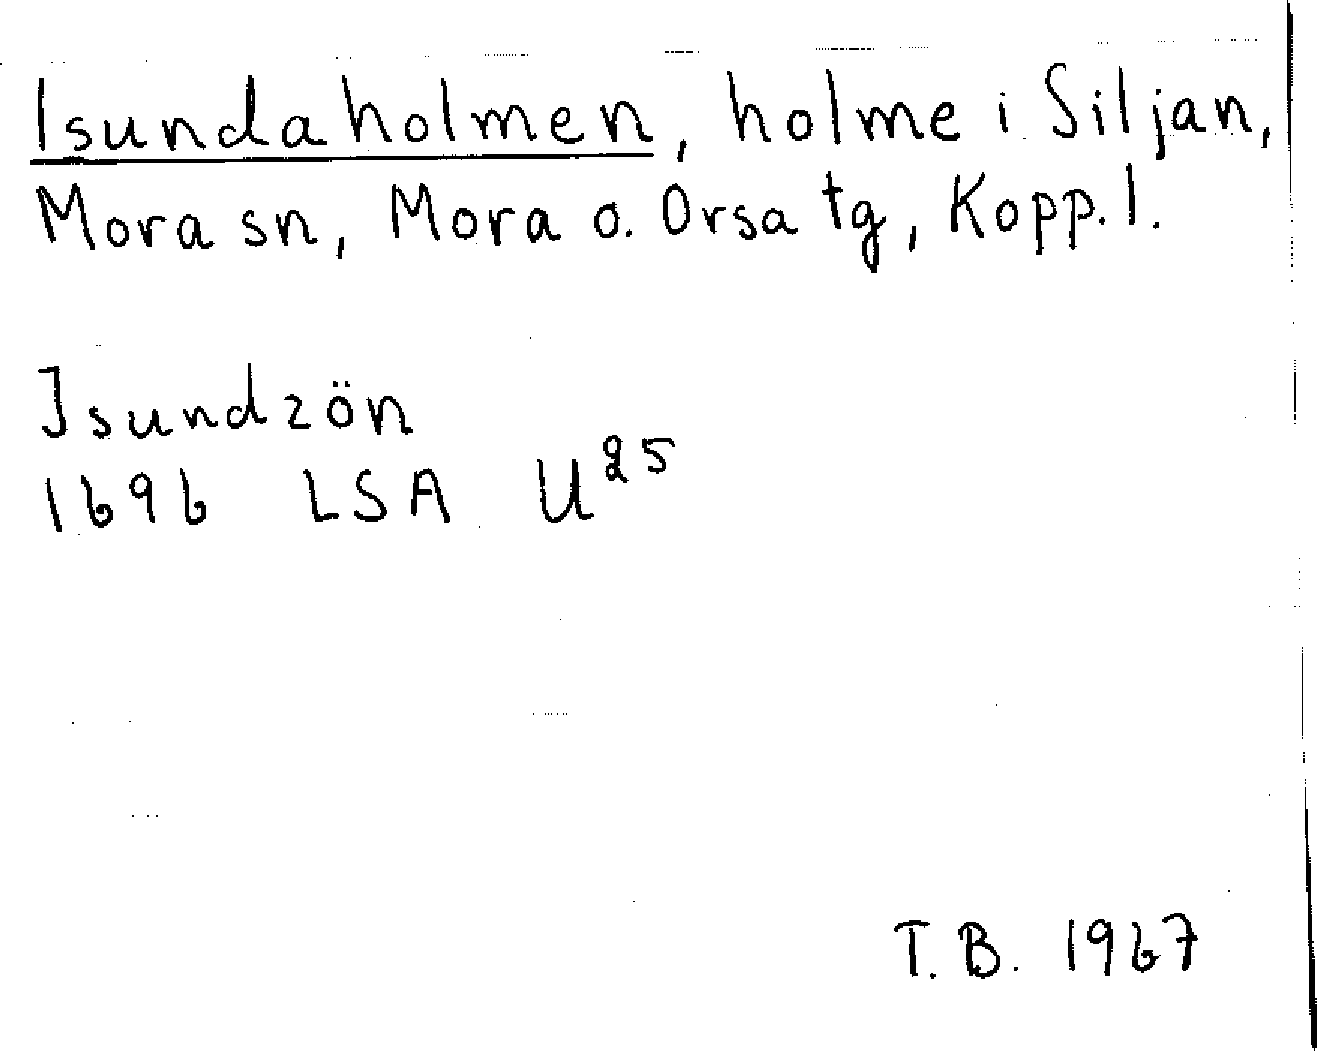 Isundaholmen, holme i Siljan,
Mora sn, Mora o. Orsa tg, Kopp. l.
Isundzön
1696 LSA U25
T.B. 1967